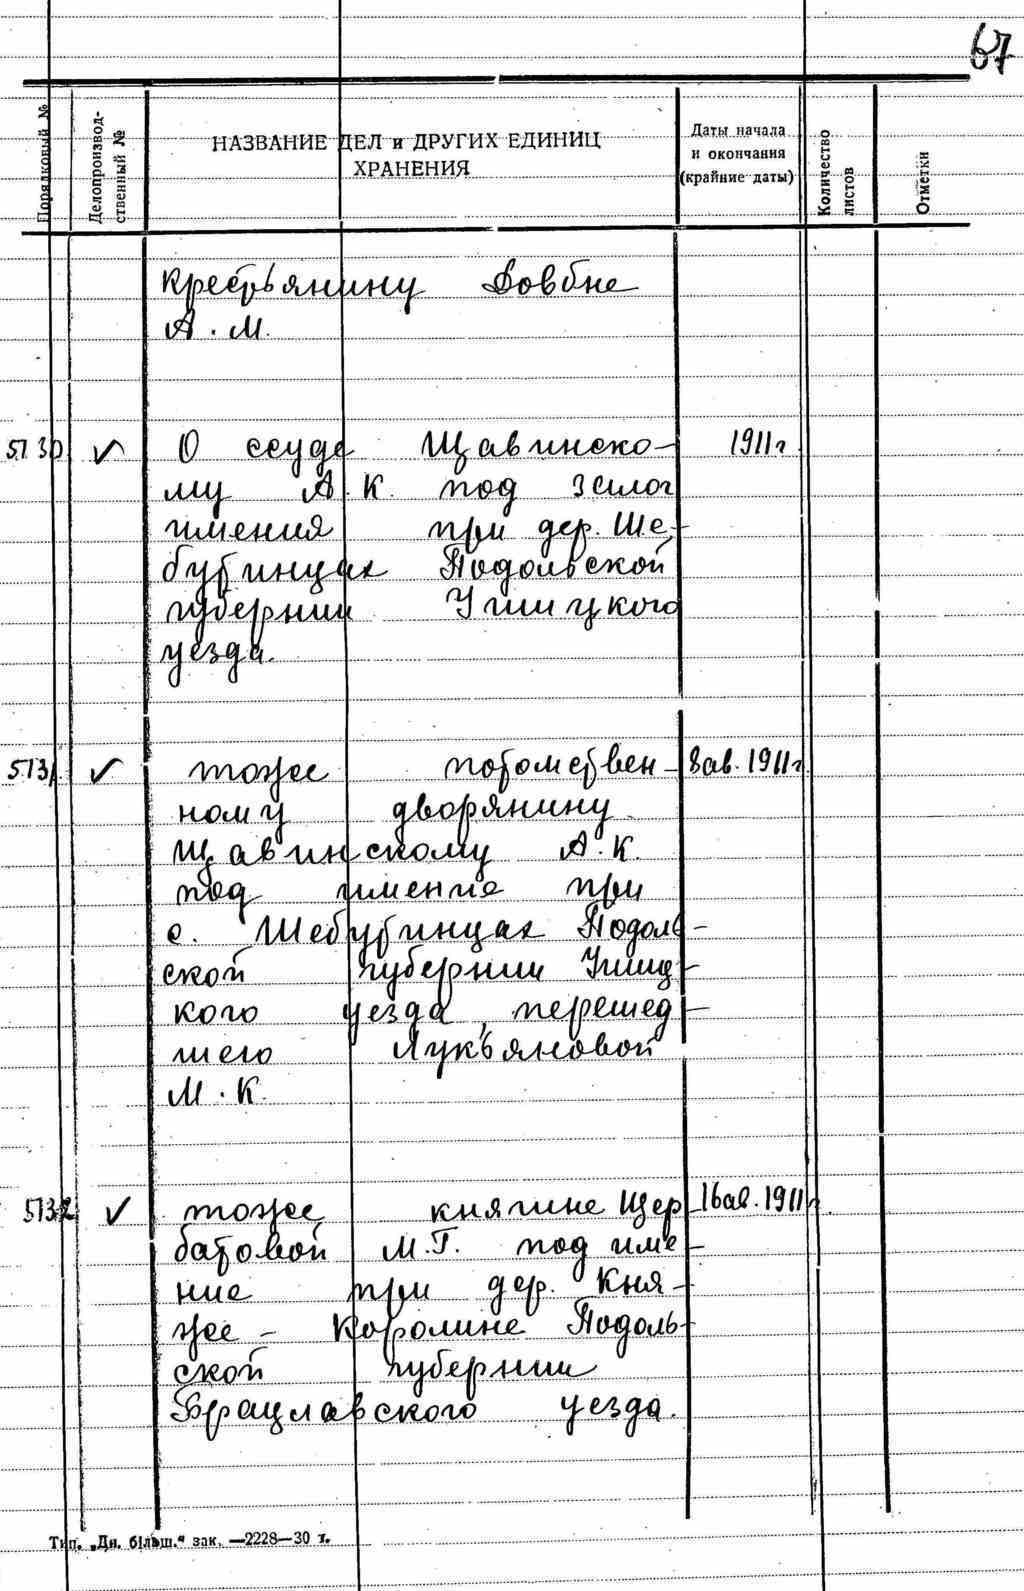 67
Порядковый №
Делопроизвод-
ственный №
НАЗВАНИЕ ДЕЛ и ДРУГИХ ЕДИНИЦ
ХРАНЕНИЯ
Даты начала
и окончания
(крайние даты)
Количество
листов
Отметки
крестьянину Довбне
А. М.
5130 ✓ О ссуде Щавинско- 1911 г
му А. К. под залог
имения при дер. Ше-
бутинцах Подольской
губернии Ушицкого
уезда.
5131 ✓ тоже потомствен- 8 ав. 1911 г
ному дворянину
Щавинскому А. К.
под имение при
с. Шебутинцах Подоль-
ской губернии Ушиц-
кого уезда, перешед-
шего Лукьяновой
М. К.
5132 ✓ тоже княгине Щер- 16 ав. 1911 г
батовой М. Г. под име-
ние при дер. Кня-
же - Королине Подоль-
ской губернии
Брацлавского уезда.
Тип. „Дн. більш." зак. —2228—30 т.